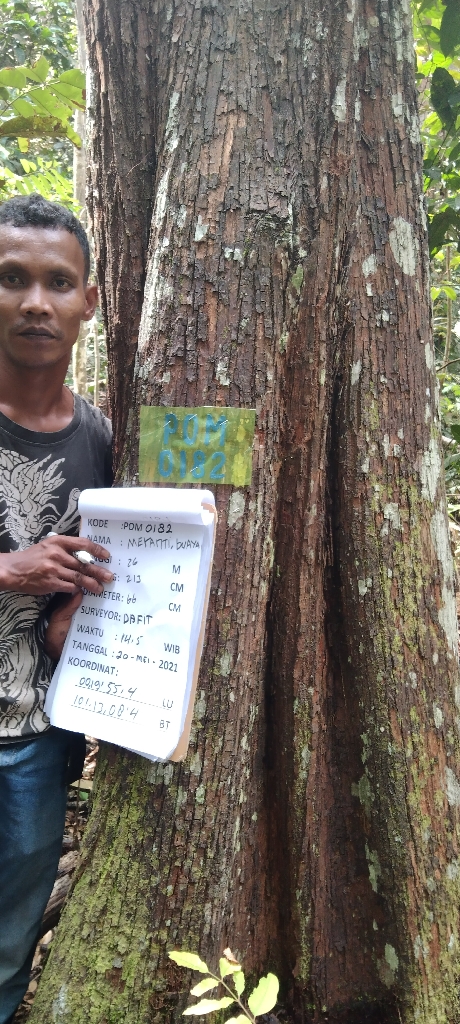 POM
0182
KODE :POM 0182
NAMA : MERANTI, BUAYA
: 26 M
: 213 CM
DIAMETER: 66 CM
SURVEYOR: DAFIT
WAKTU : 14.5 WIB
TANGGAL : 20 - MEI - 2021
KOORDINAT:
LU
101.12,08.4 BT